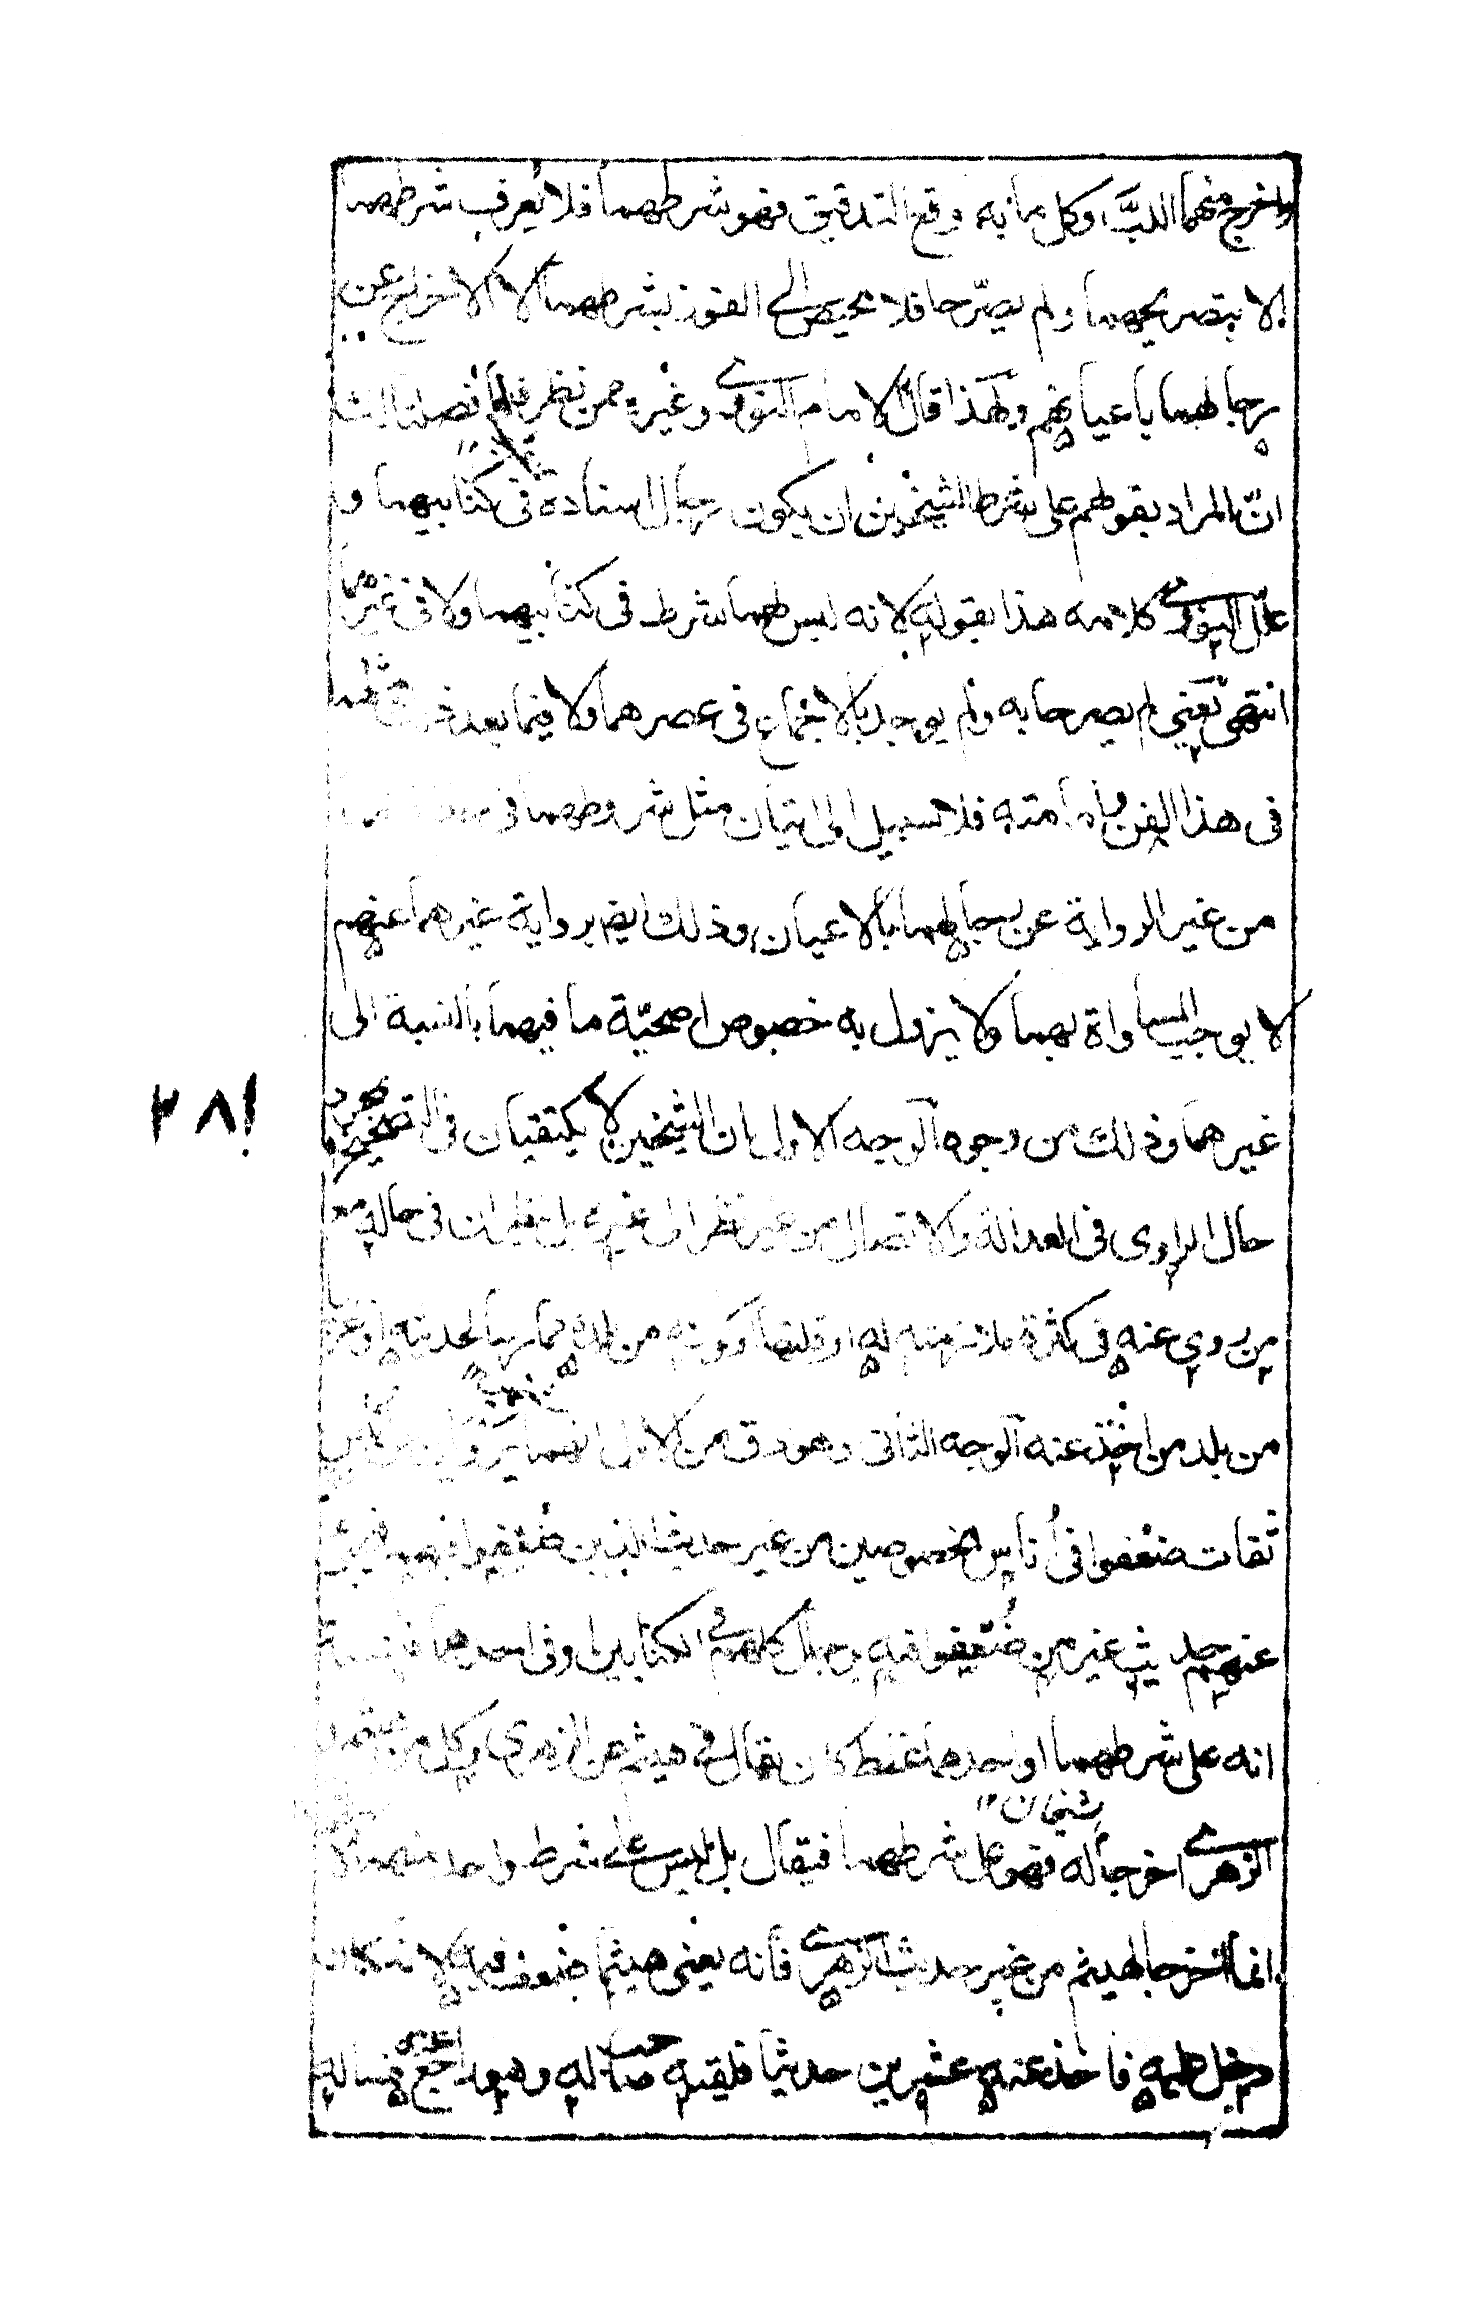 واخرج منهما اللبّ وكل ما به وقع التدقيق فهو شرطهما فلا يُعرف شرطهما
الا بتصريحهما ولم يصرّحا فلا محيص الى الفوز بشرطهما الا الاخراج عن
رجالهما باعيانهم ولهذا قال الامام النووي وغيره ممن نظر
انّ المراد بقولهم على شرط الشيخين ان يكون رجال اسناده فى كتابيهما و
علّل النووي كلامه هذا بقوله لانه ليس لهما شرط فى كتابيهما ولا فى غيرهما
انتهى يعنى لم يصرحا به ولم يوجد بالاجماع فى عصرهما ولا فيما بعد
فى هذا الفن وامامته فلا سبيل الى اتيان مثل شروطهما
من غير الرواية عن رجالهما بالاعيان وذلك ايضا برواية غيرهما عنهم
لا يوجب المساواة بهما ولا يزول به خصوص اصحيّة ما فيهما بالنسبة الى
غيرهما وذلك من وجوه الوجه الاول بان الشيخين لا يكتفيان فى التصحيح بمجرد
٢٨١
حال الراوى فى العدالة والاتصال من غير نظر الى غيره بل ينظران فى حاله مع
من يروي عنه فى كثرة ملازمته له او قلتها او كونه من بلده ممارسا لحديثه او غريبا
من بلد من اخذ عنه الوجه الثانى وهو ادق من الاول انهما يرويان عن اناس
ثقات ضعفوا فى أناس مخصوصين من غير حديث الذين ضُعّفوا فيهم فيجئ
عنهم حديث غير من ضُعّفوا فيه برجال كلهم فى الكتابين او فى احدهما فنسبة
انه على شرطهما او احدهما غلط كان يقال فى هيثم عن الزهري وكل من هيثم و
شيخان ١٢
الزهري اخرجا له فهو على شرطهما فيقال بل ليس على شرط واحد منهما لا
انما اخرجا لهيثم من غير حديث الزهري فانه يعنى هيثما ضُعف فيه لانه كان
دخل عليه فاخذ عنه عشرين حديثا فلقيه صاحب له وهو راجع فساله